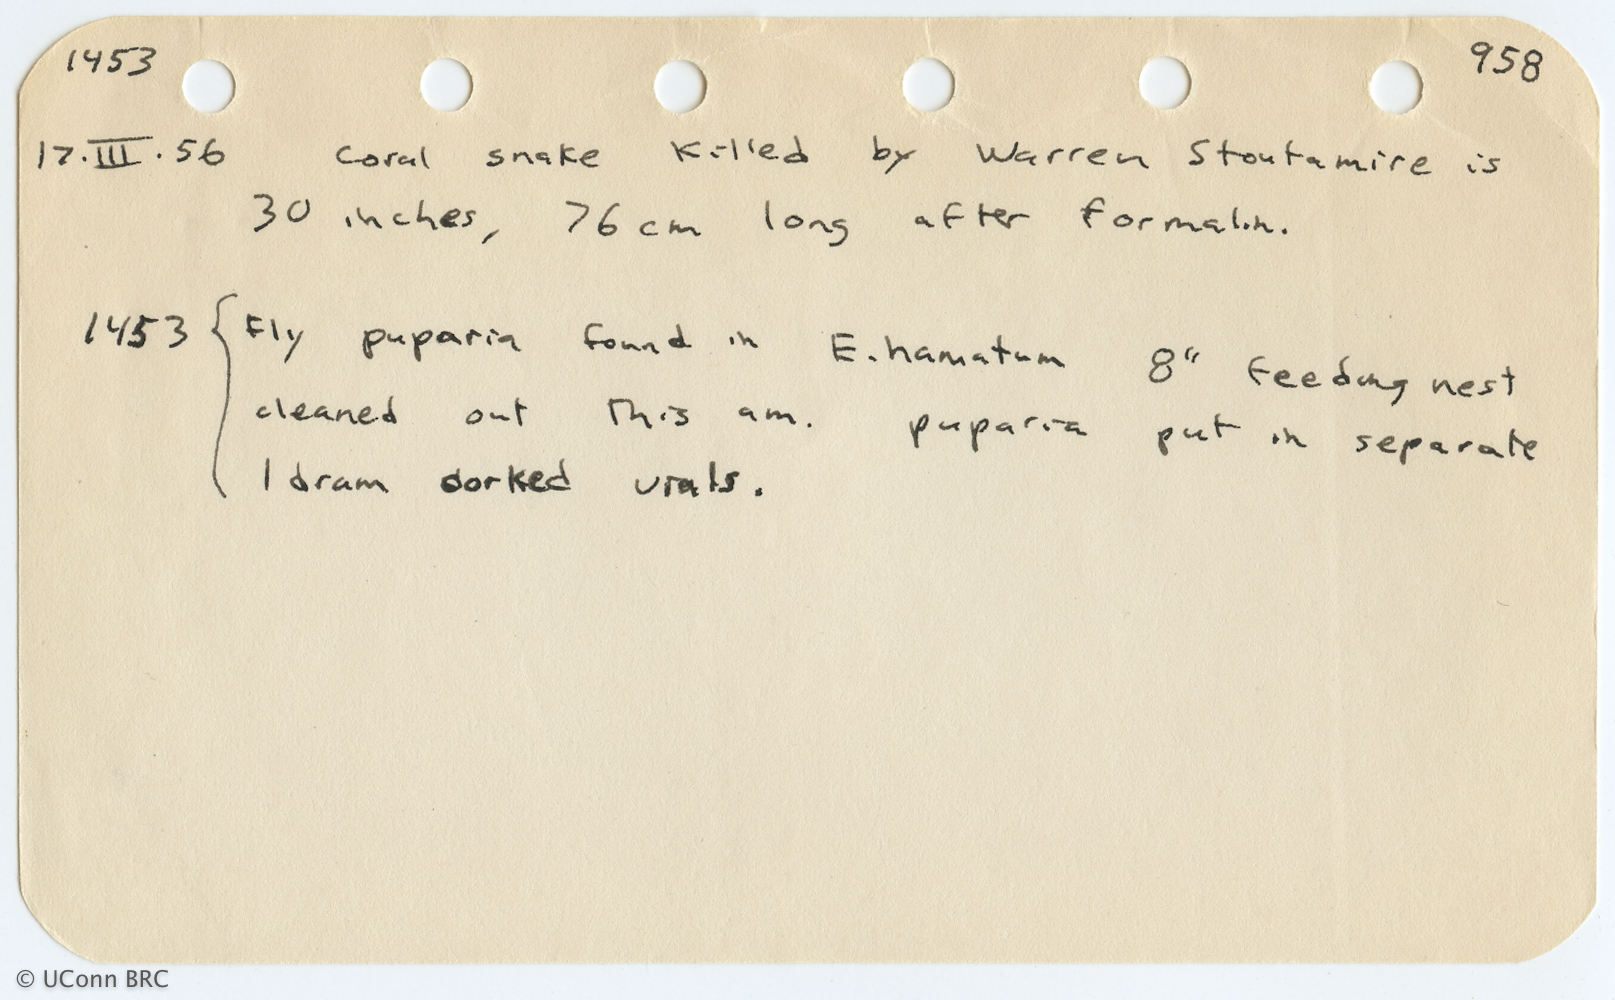 1453 958
17.III.56 Coral snake killed by Warren Stoutamire is
30 inches, 76 cm long after formalin.
1453 { Fly puparia found in E. hamatum 8" feeding nest
cleaned out this am. puparia put in separate
1 dram corked vials.
© UConn BRC